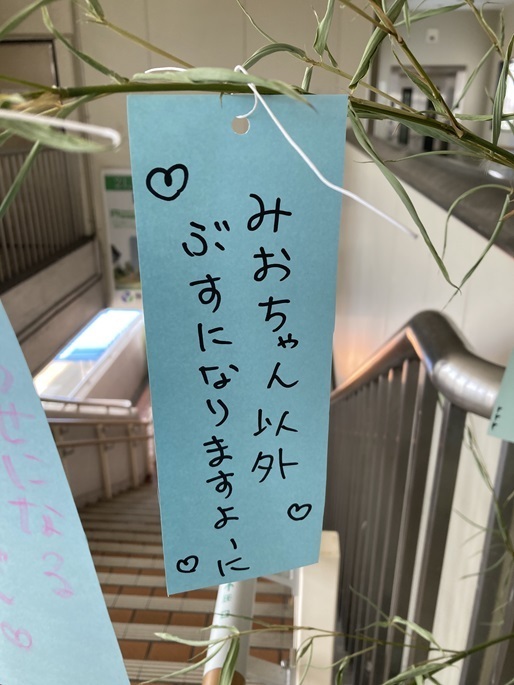 みおちゃん以外
ぶすになりますよーに
せになる